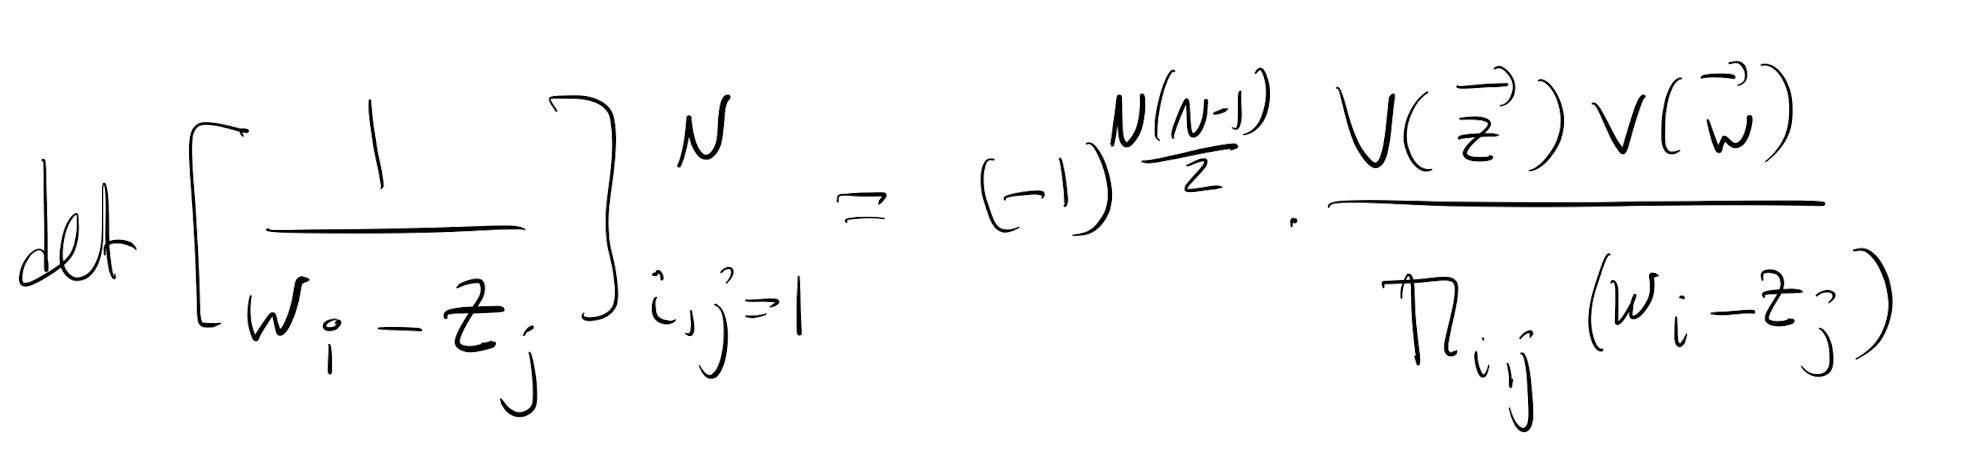 det [ 1 / (w_i - z_j) ]_{i,j=1}^{N} = (-1)^{N(N-1)/2} · V(\vec{z}) V(\vec{w}) / ∏_{i,j} (w_i - z_j)